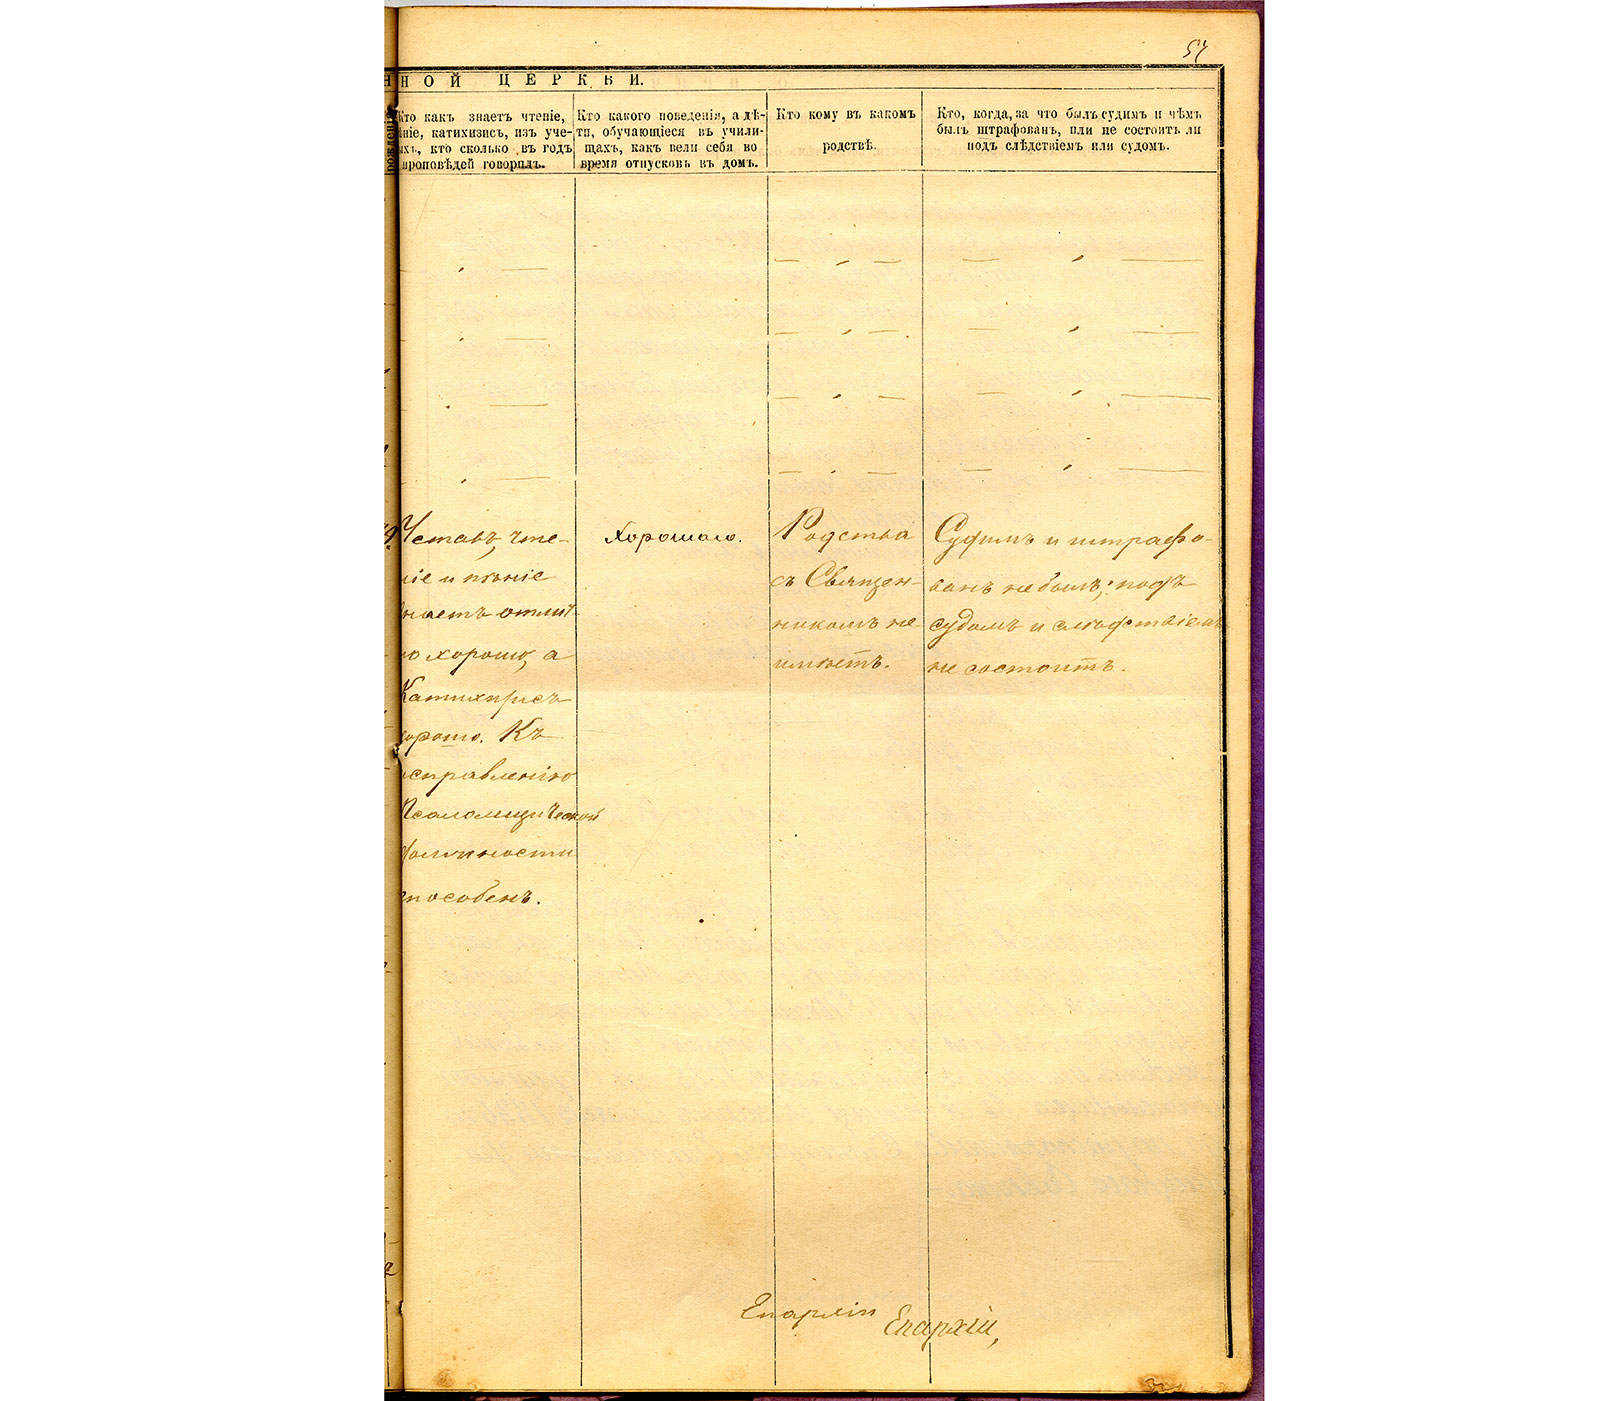 57
ННОЙ ЦЕРКВИ.
Кто какъ знаетъ чтеніе,
ѣніе, катихизисъ, изъ уче-
ыхъ, кто сколько въ годъ
проповѣдей говорилъ.
Кто какого поведенія, а дѣ-
ти, обучающіеся въ учили-
щахъ, какъ вели себя во
время отпусковъ въ домъ.
Кто кому въ какомъ
родствѣ.
Кто, когда, за что былъ судимъ и чѣмъ
былъ штрафованъ, или не состоитъ ли
подъ слѣдствіемъ или судомъ.
Уставъ, чте-
ніе и пѣніе
знаетъ отлич-
но хорошо, а
Катихизисъ
хорошо. Къ
исправленію
Псаломщической
должности
способенъ.
Хорошаго.
Родства
съ Священ-
никомъ не
имѣетъ.
Судимъ и штрафо-
ванъ не былъ; подъ
судомъ и слѣдствіемъ
не состоитъ.
Епархіи
Епархіи,